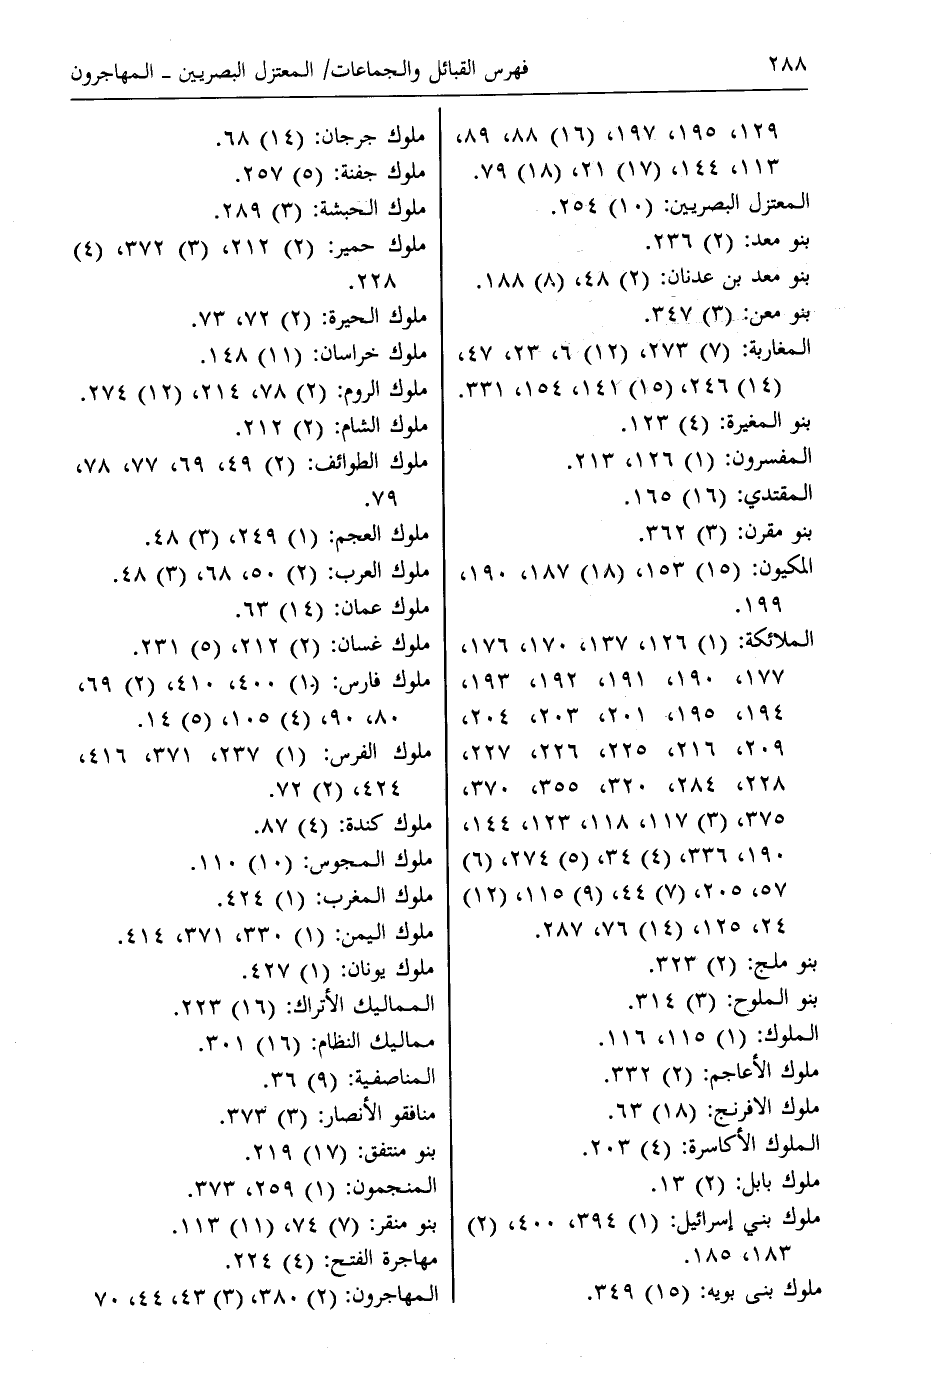 ٢٨٨
فهرس القبائل والجماعات/ المعتزل البصريين ـ المهاجرون
١٢٩، ١٩٥، ١٩٧، (١٦) ٨٨، ٨٩،
١١٣، ١٤٤، (١٧) ٢١، (١٨) ٧٩.
المعتزل البصريين: (١٠) ٢٥٤.
بنو معد: (٢) ٢٣٦.
بنو معد بن عدنان: (٢) ٤٨، (٨) ١٨٨.
بنو معن: (٣) ٣٤٧.
المغاربة: (٧) ٢٧٣، (١٢) ٦، ٢٣، ٤٧،
(١٤) ٢٤٦، (١٥) ١٤١، ١٥٤، ٣٣١.
بنو المغيرة: (٤) ١٢٣.
المفسرون: (١) ١٢٦، ٢١٣.
المقتدي: (١٦) ١٦٥.
بنو مقرن: (٣) ٣٦٢.
المكيون: (١٥) ١٥٣، (١٨) ١٨٧، ١٩٠،
١٩٩.
الملائكة: (١) ١٢٦، ١٣٧، ١٧٠، ١٧٦،
١٧٧، ١٩٠، ١٩١، ١٩٢، ١٩٣،
١٩٤، ١٩٥، ٢٠١، ٢٠٣، ٢٠٤،
٢٠٩، ٢١٦، ٢٢٥، ٢٢٦، ٢٢٧،
٢٢٨، ٢٨٤، ٣٢٠، ٣٥٥، ٣٧٠،
٣٧٥، (٣) ١١٧، ١١٨، ١٢٣، ١٤٤،
١٩٠، ٣٣٦، (٤) ٣٤، (٥) ٢٧٤، (٦)
٥٧، ٢٠٥، (٧) ٤٤، (٩) ١١٥، (١٢)
٢٤، ١٢٥، (١٤) ٧٦، ٢٨٧.
بنو ملج: (٢) ٣٢٣.
بنو الملوح: (٣) ٣١٤.
الملوك: (١) ١١٥، ١١٦.
ملوك الأعاجم: (٢) ٣٣٢.
ملوك الافرنج: (١٨) ٦٣.
الملوك الأكاسرة: (٤) ٢٠٣.
ملوك بابل: (٢) ١٣.
ملوك بني إسرائيل: (١) ٣٩٤، ٤٠٠، (٢)
١٨٣، ١٨٥.
ملوك بنى بويه: (١٥) ٣٤٩.
ملوك جرجان: (١٤) ٦٨.
ملوك جفنة: (٥) ٢٥٧.
ملوك الحبشة: (٣) ٢٨٩.
ملوك حمير: (٢) ٢١٢، (٣) ٣٧٢، (٤)
٢٢٨.
ملوك الحيرة: (٢) ٧٢، ٧٣.
ملوك خراسان: (١١) ١٤٨.
ملوك الروم: (٢) ٧٨، ٢١٤، (١٢) ٢٧٤.
ملوك الشام: (٢) ٢١٢.
ملوك الطوائف: (٢) ٤٩، ٦٩، ٧٧، ٧٨،
٧٩.
ملوك العجم: (١) ٢٤٩، (٣) ٤٨.
ملوك العرب: (٢) ٥٠، ٦٨، (٣) ٤٨.
ملوك عمان: (١٤) ٦٣.
ملوك غسان: (٢) ٢١٢، (٥) ٢٣١.
ملوك فارس: (١) ٤٠٠، ٤١٠، (٢) ٦٩،
٨٠، ٩٠، (٤) ١٠٥، (٥) ١٤.
ملوك الفرس: (١) ٢٣٧، ٣٧١، ٤١٦،
٤٢٤، (٢) ٧٢.
ملوك كندة: (٤) ٨٧.
ملوك المجوس: (١٠) ١١٠.
ملوك المغرب: (١) ٤٢٤.
ملوك اليمن: (١) ٣٣٠، ٣٧١، ٤١٤.
ملوك يونان: (١) ٤٢٧.
المماليك الأتراك: (١٦) ٢٢٣.
مماليك النظام: (١٦) ٣٠١.
المناصفية: (٩) ٣٦.
منافقو الأنصار: (٣) ٣٧٣.
بنو منتفق: (١٧) ٢١٩.
المنجمون: (١) ٢٥٩، ٣٧٣.
بنو منقر: (٧) ٧٤، (١١) ١١٣.
مهاجرة الفتح: (٤) ٢٢٤.
المهاجرون: (٢) ٣٨٠، (٣) ٤٣، ٤٤، ٧٠